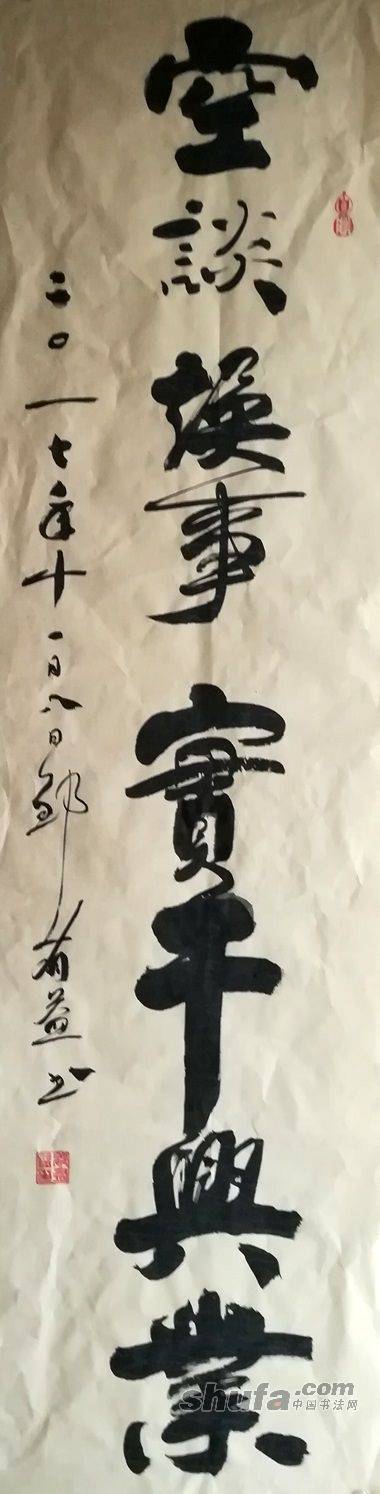 空談誤事實干興業
二〇一七年十一月八日鄒益书
shufa.com
中国书法网